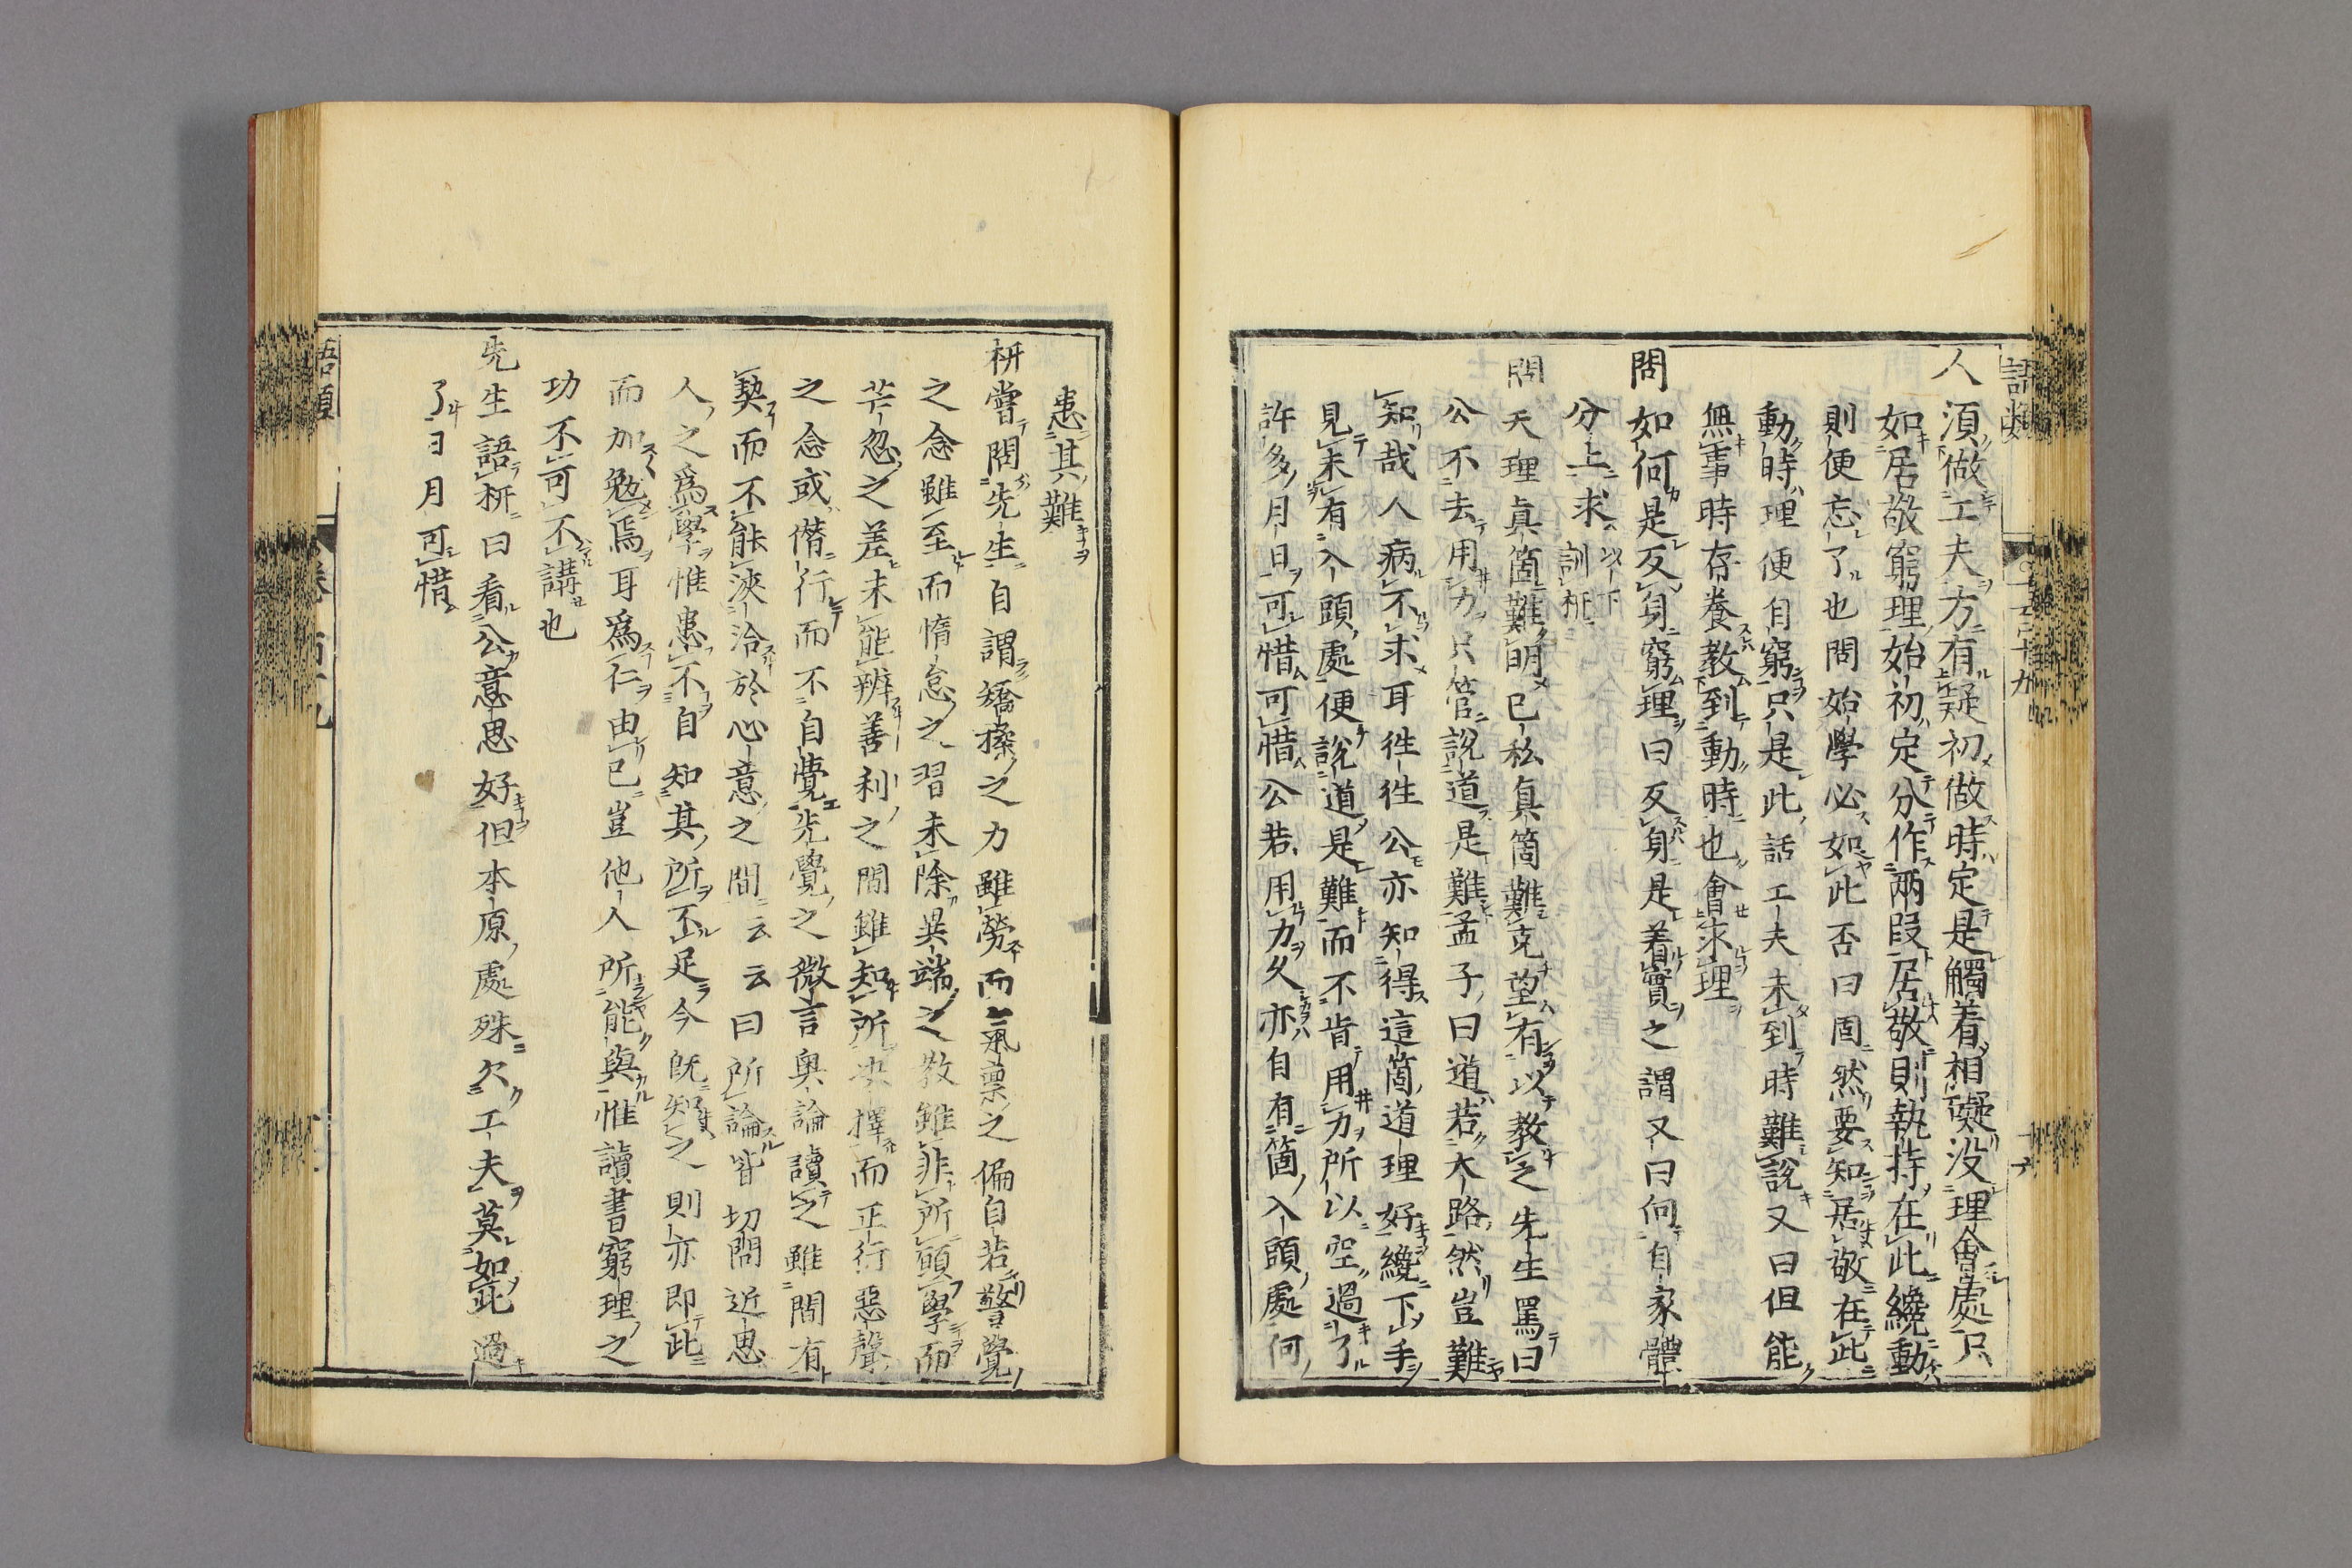 語類
人須做工夫方有疑初做時定是觸着相礙没理會處只
如居敬窮理始初定分作兩段居敬則執持在此纔動
則便忘了也問始學必如此否曰固然要知居敬在此
動時理便自窮只是此話工夫未到時難說又曰但能
無事時存養教到動時也會求理
問如何是反身窮理曰反身是着實之謂又曰向自家體
分上求以下訓枅
問天理真箇難明已私真箇難克望有以教之先生罵曰
公不去用力只管說道是難孟子曰道若大路然豈難
知哉人病不求耳徃徃公亦知得這箇道理好纔下手
見未有入頭處便說道是難而不肯用力所以空過了
許多月日可惜可惜公若用力久亦自有箇入頭處何
患其難
枅嘗問先生自謂矯揉之力雖勞而氣稟之偏自若警覺
之念雖至而惰怠之習未除異端之教雖非所願學而
芒忽之差未能辨善利之間雖知所决擇而正行惡聲
之念或僭行而不自覺先覺之微言奥論讀之雖間有
契而不能浹洽於心意之間云云曰所論皆切問近思
人之爲學惟患不自知其所不足今既知之則亦即此
而加勉焉耳爲仁由已豈他人所能與惟讀書窮理之
功不可不講也
先生語枅曰看公意思好但本原處殊欠工夫莫如此過
了日月可惜
語類